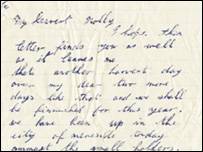 My Dearest Molly
I hope this
letter finds you as well
as it leaves me
that another harvest day
over my dear two more
days like that and we shall
be finished for this year.
we have been up in the
city of today
amongst the small holders.